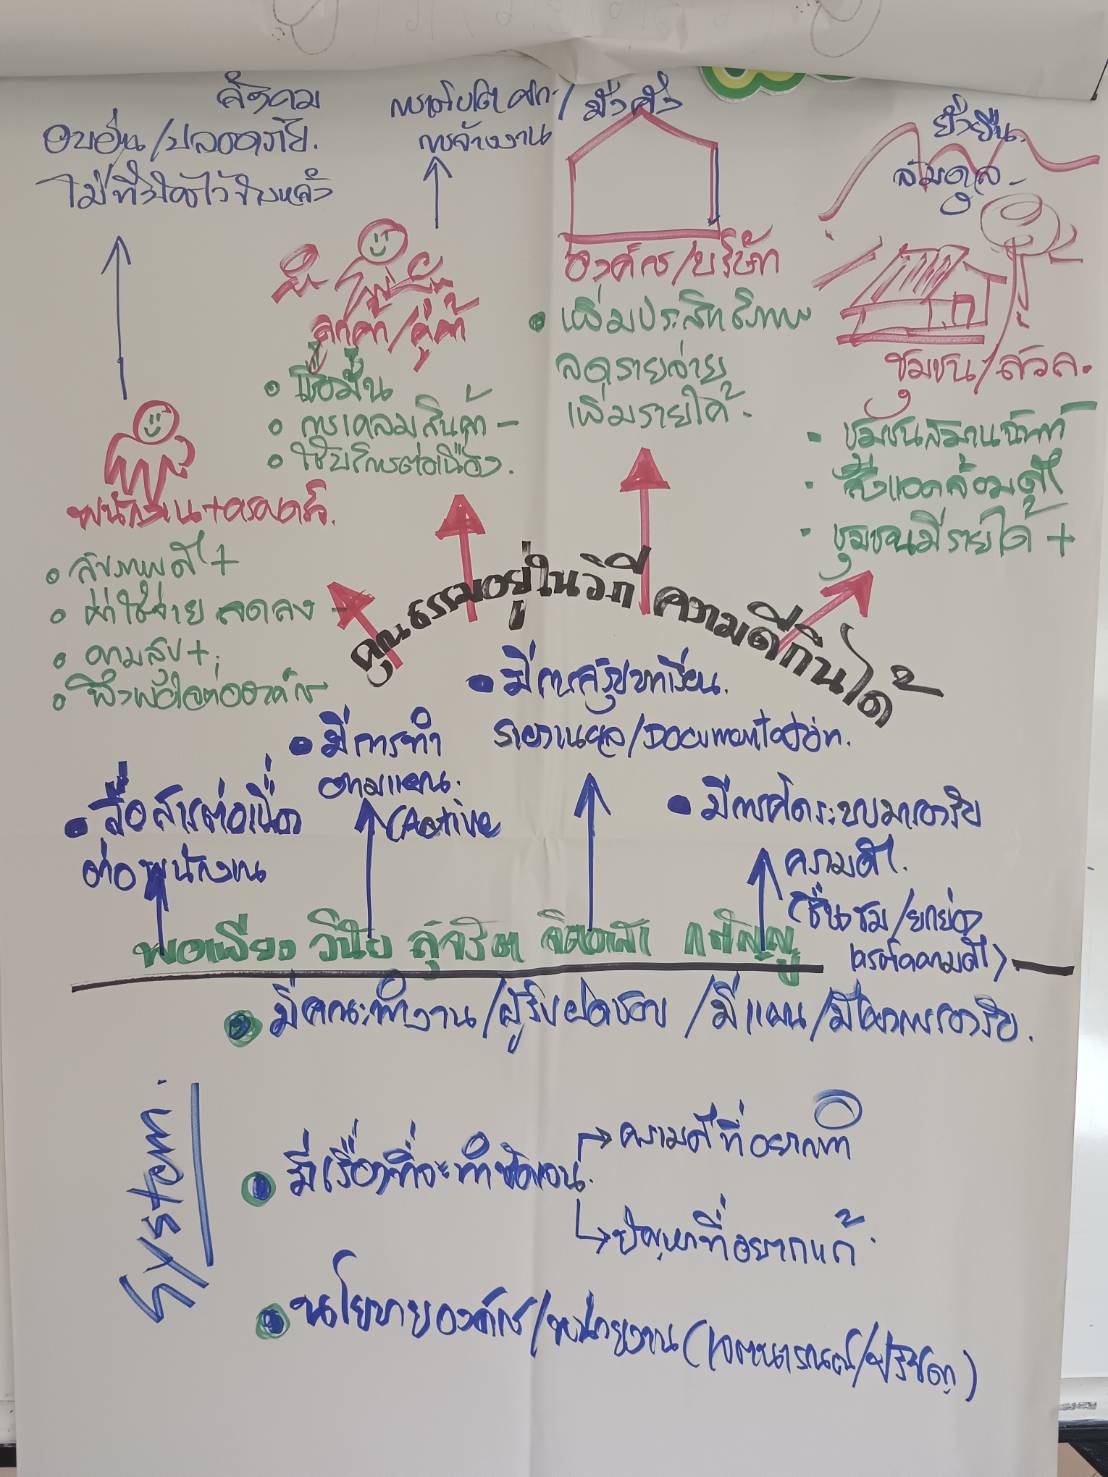 สังคม
อบอุ่น/ปลอดภัย.
ไม่ทิ้งใครไว้ข้างหลัง
การเติบโต
การจ้างงาน / มั่งคั่ง
ยั่งยืน.
สมดุล.
พนักงาน+ครอบครัว.
• สุขภาพดี +
• ค่าใช้จ่าย ลดลง -
• ความสุข +
• พึงพอใจต่อองค์กร
ลูกค้า/คู่ค้า
• เชื่อมั่น
• การเคลมสินค้า -
• ใช้บริการต่อเนื่อง.
องค์กร/บริษัท
• เพิ่มประสิทธิภาพ
ลดรายจ่าย
เพิ่มรายได้.
ชุมชน/สวล.
• ชุมชนสมานฉันท์
• สิ่งแวดล้อมดี
• ชุมชนมีรายได้ +
คุณธรรมอยู่ในวิถี ความดีกินได้
• สื่อสารต่อเนื่อง
ต่อพนักงาน
• มีการทำ
ตามแผน.
(Active
• มีการสรุปบทเรียน.
รายงานผล/Documentation.
• มีการจัดระบบมาตรวัด
ความดี.
(ชื่นชม/ยกย่อง
พอเพียง วินัย สุจริต จิตอาสา กตัญญู
• มีคณะทำงาน/ผู้รับผิดชอบ /มีแผน/มี
System.
• มีเรื่องที่จะทำชัดเจน.
→ ความดีที่อยากทำ
↳ ปัญหาที่อยากแก้.
• นโยบายองค์กร/หน่วยงาน (เจตนารมณ์/